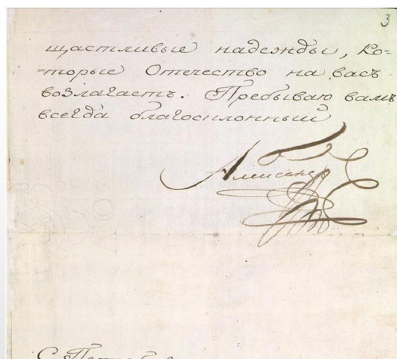 3
щастливые надежды, ко=
торые Отечество на васъ
возлагаетъ. Пребываю вамъ
всегда благосклонный
Александръ